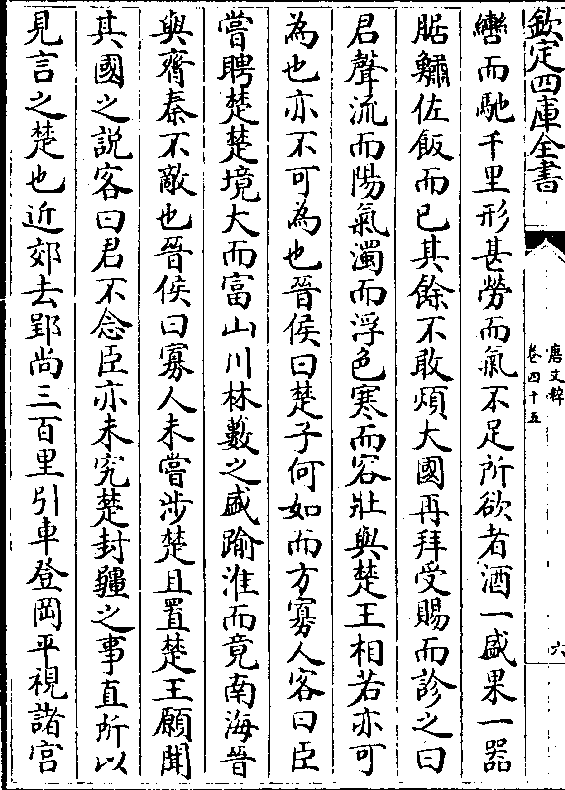 欽定四庫全書
唐文粹
卷四十五
六
轡而馳千里形甚勞而氣不足所欲者酒一盛果一器
腒鱐佐飯而已其餘不敢煩大國再拜受賜而診之曰
君聲流而陽氣濁而浮色寒而容壯與楚王相若亦可
為也亦不可為也晉侯曰楚子何如而方寡人客曰臣
嘗聘楚楚境大而富山川林藪之盛踰淮而竟南海晉
與齊秦不敵也晉侯曰寡人未嘗涉楚且置楚王願聞
其國之説客曰君不念臣亦未究楚封疆之事直所以
見言之楚也近郊去郢尚三百里引車登岡平視諸宮